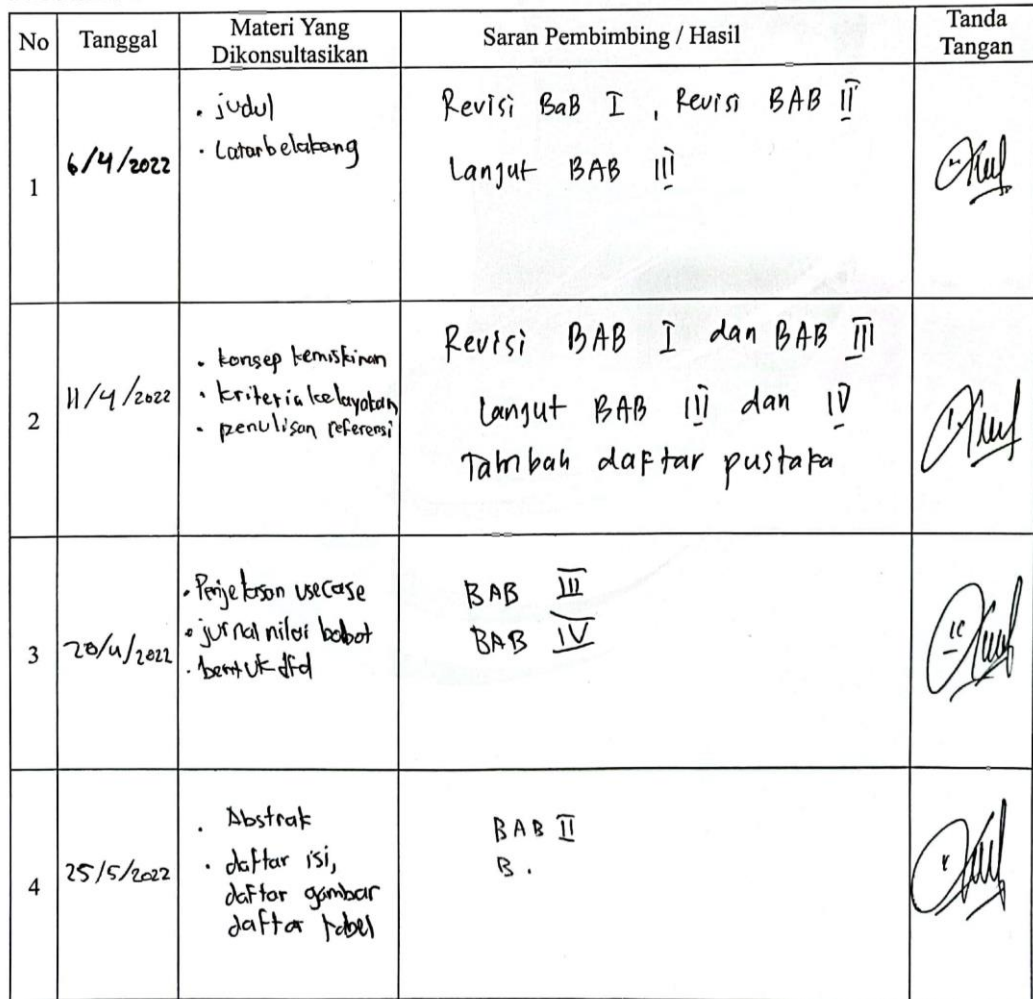 No Tanggal Materi Yang Dikonsultasikan Saran Pembimbing / Hasil Tanda Tangan
1 6/4/2022
• judul
• Latarbelakang
Revisi BaB I , Revisi BAB II
Lanjut BAB III
2 11/4/2022
• konsep kemiskinan
• kriteria kelayakan
• penulisan referensi
Revisi BAB I dan BAB III
Lanjut BAB III dan IV
Tambah daftar pustaka
3 20/4/2022
• Penjelasan usecase
• jurnal nilai bobot
• bentuk dfd
BAB III
BAB IV
4 25/5/2022
• Abstrak
• daftar isi,
daftar gambar
daftar tabel
BAB II
B.